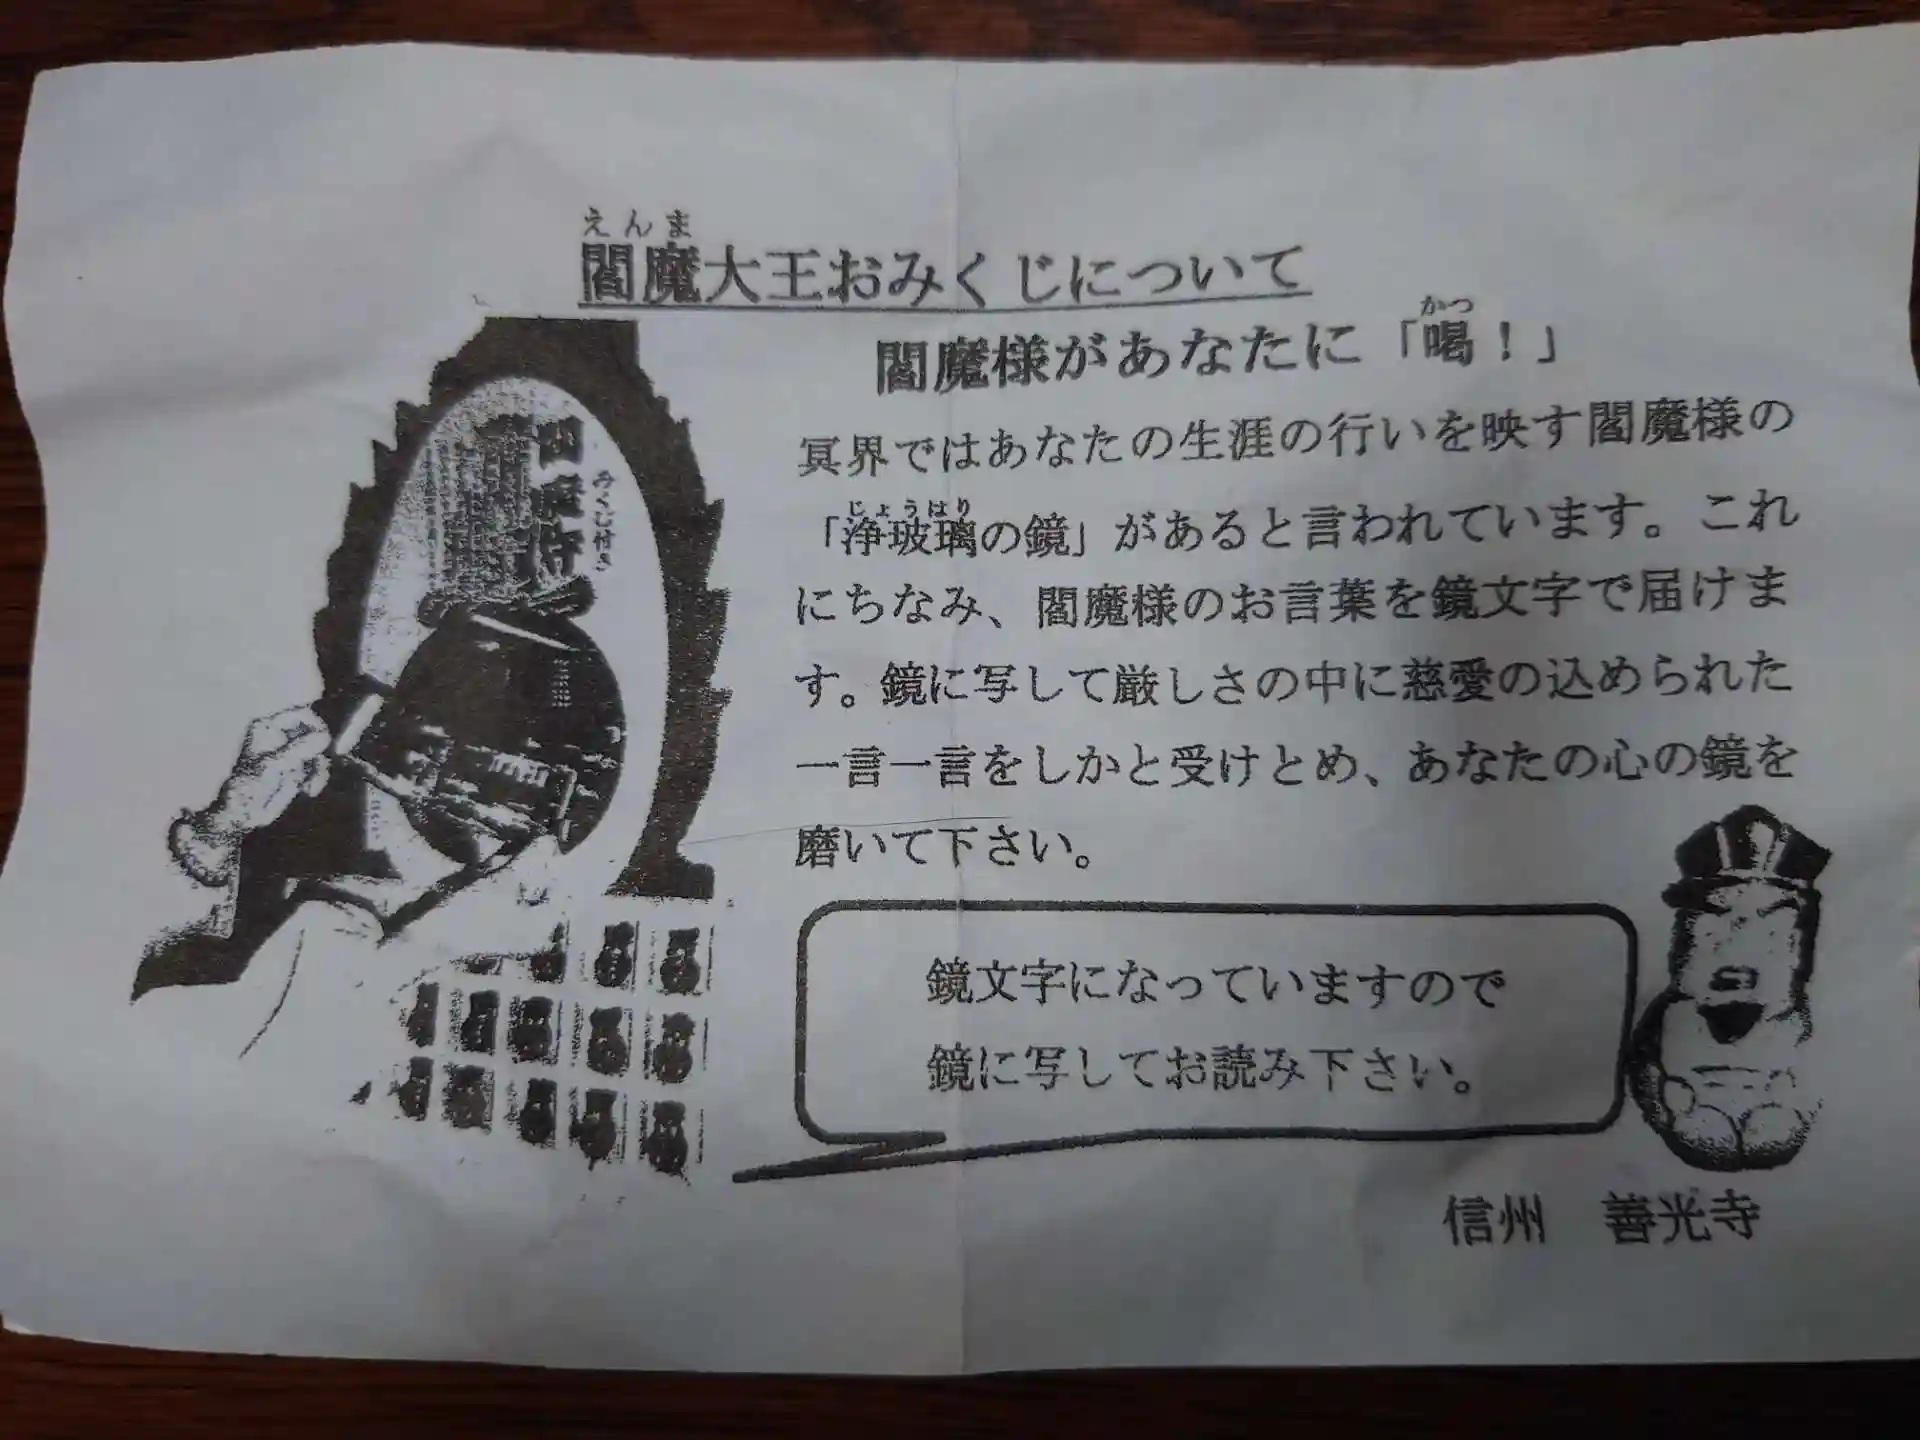 えんま
閻魔大王おみくじについて
かつ
閻魔様があなたに「喝！」
冥界ではあなたの生涯の行いを映す閻魔様の
じょうはり
「浄玻璃の鏡」があると言われています。これ
にちなみ、閻魔様のお言葉を鏡文字で届けま
す。鏡に写して厳しさの中に慈愛の込められた
一言一言をしかと受けとめ、あなたの心の鏡を
磨いて下さい。
みくじ付き
鏡文字になっていますので
鏡に写してお読み下さい。
信州　善光寺